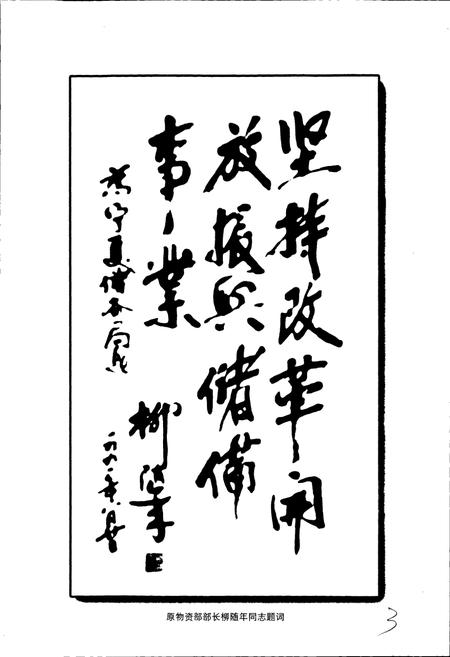 坚持改革、开
放振兴储备
事业
为宁夏储备局题
柳随年
一九九一年八月
原物资部部长柳随年同志题词
3